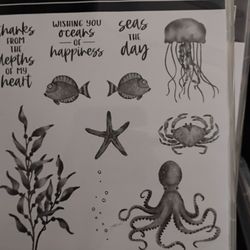 thanks
FROM
THE
depths
OF MY
heart
WISHING YOU
oceans
OF
happiness
seas
THE
day